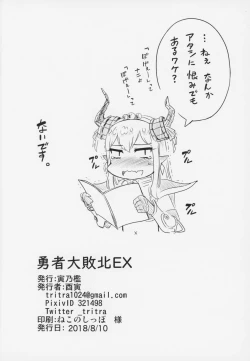 …ねぇ なんか
アタシに恨みでも
あるワケ？
ないです。
プル
プル
勇者大敗北EX
発行:寅乃檻
発行者:酉寅
tritra1024@gmail.com
PixivID 321498
Twitter _tritra
印刷:ねこのしっぽ 様
発行日: 2018/8/10